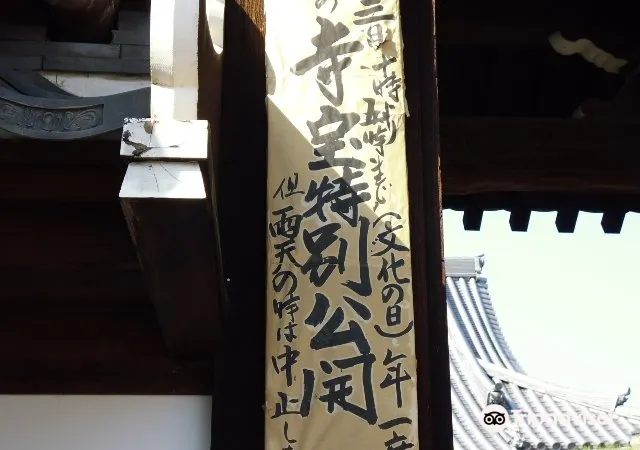 三日十時五時まで(文化の日)年一
の寺宝特別公開
但雨天の時は中止しま